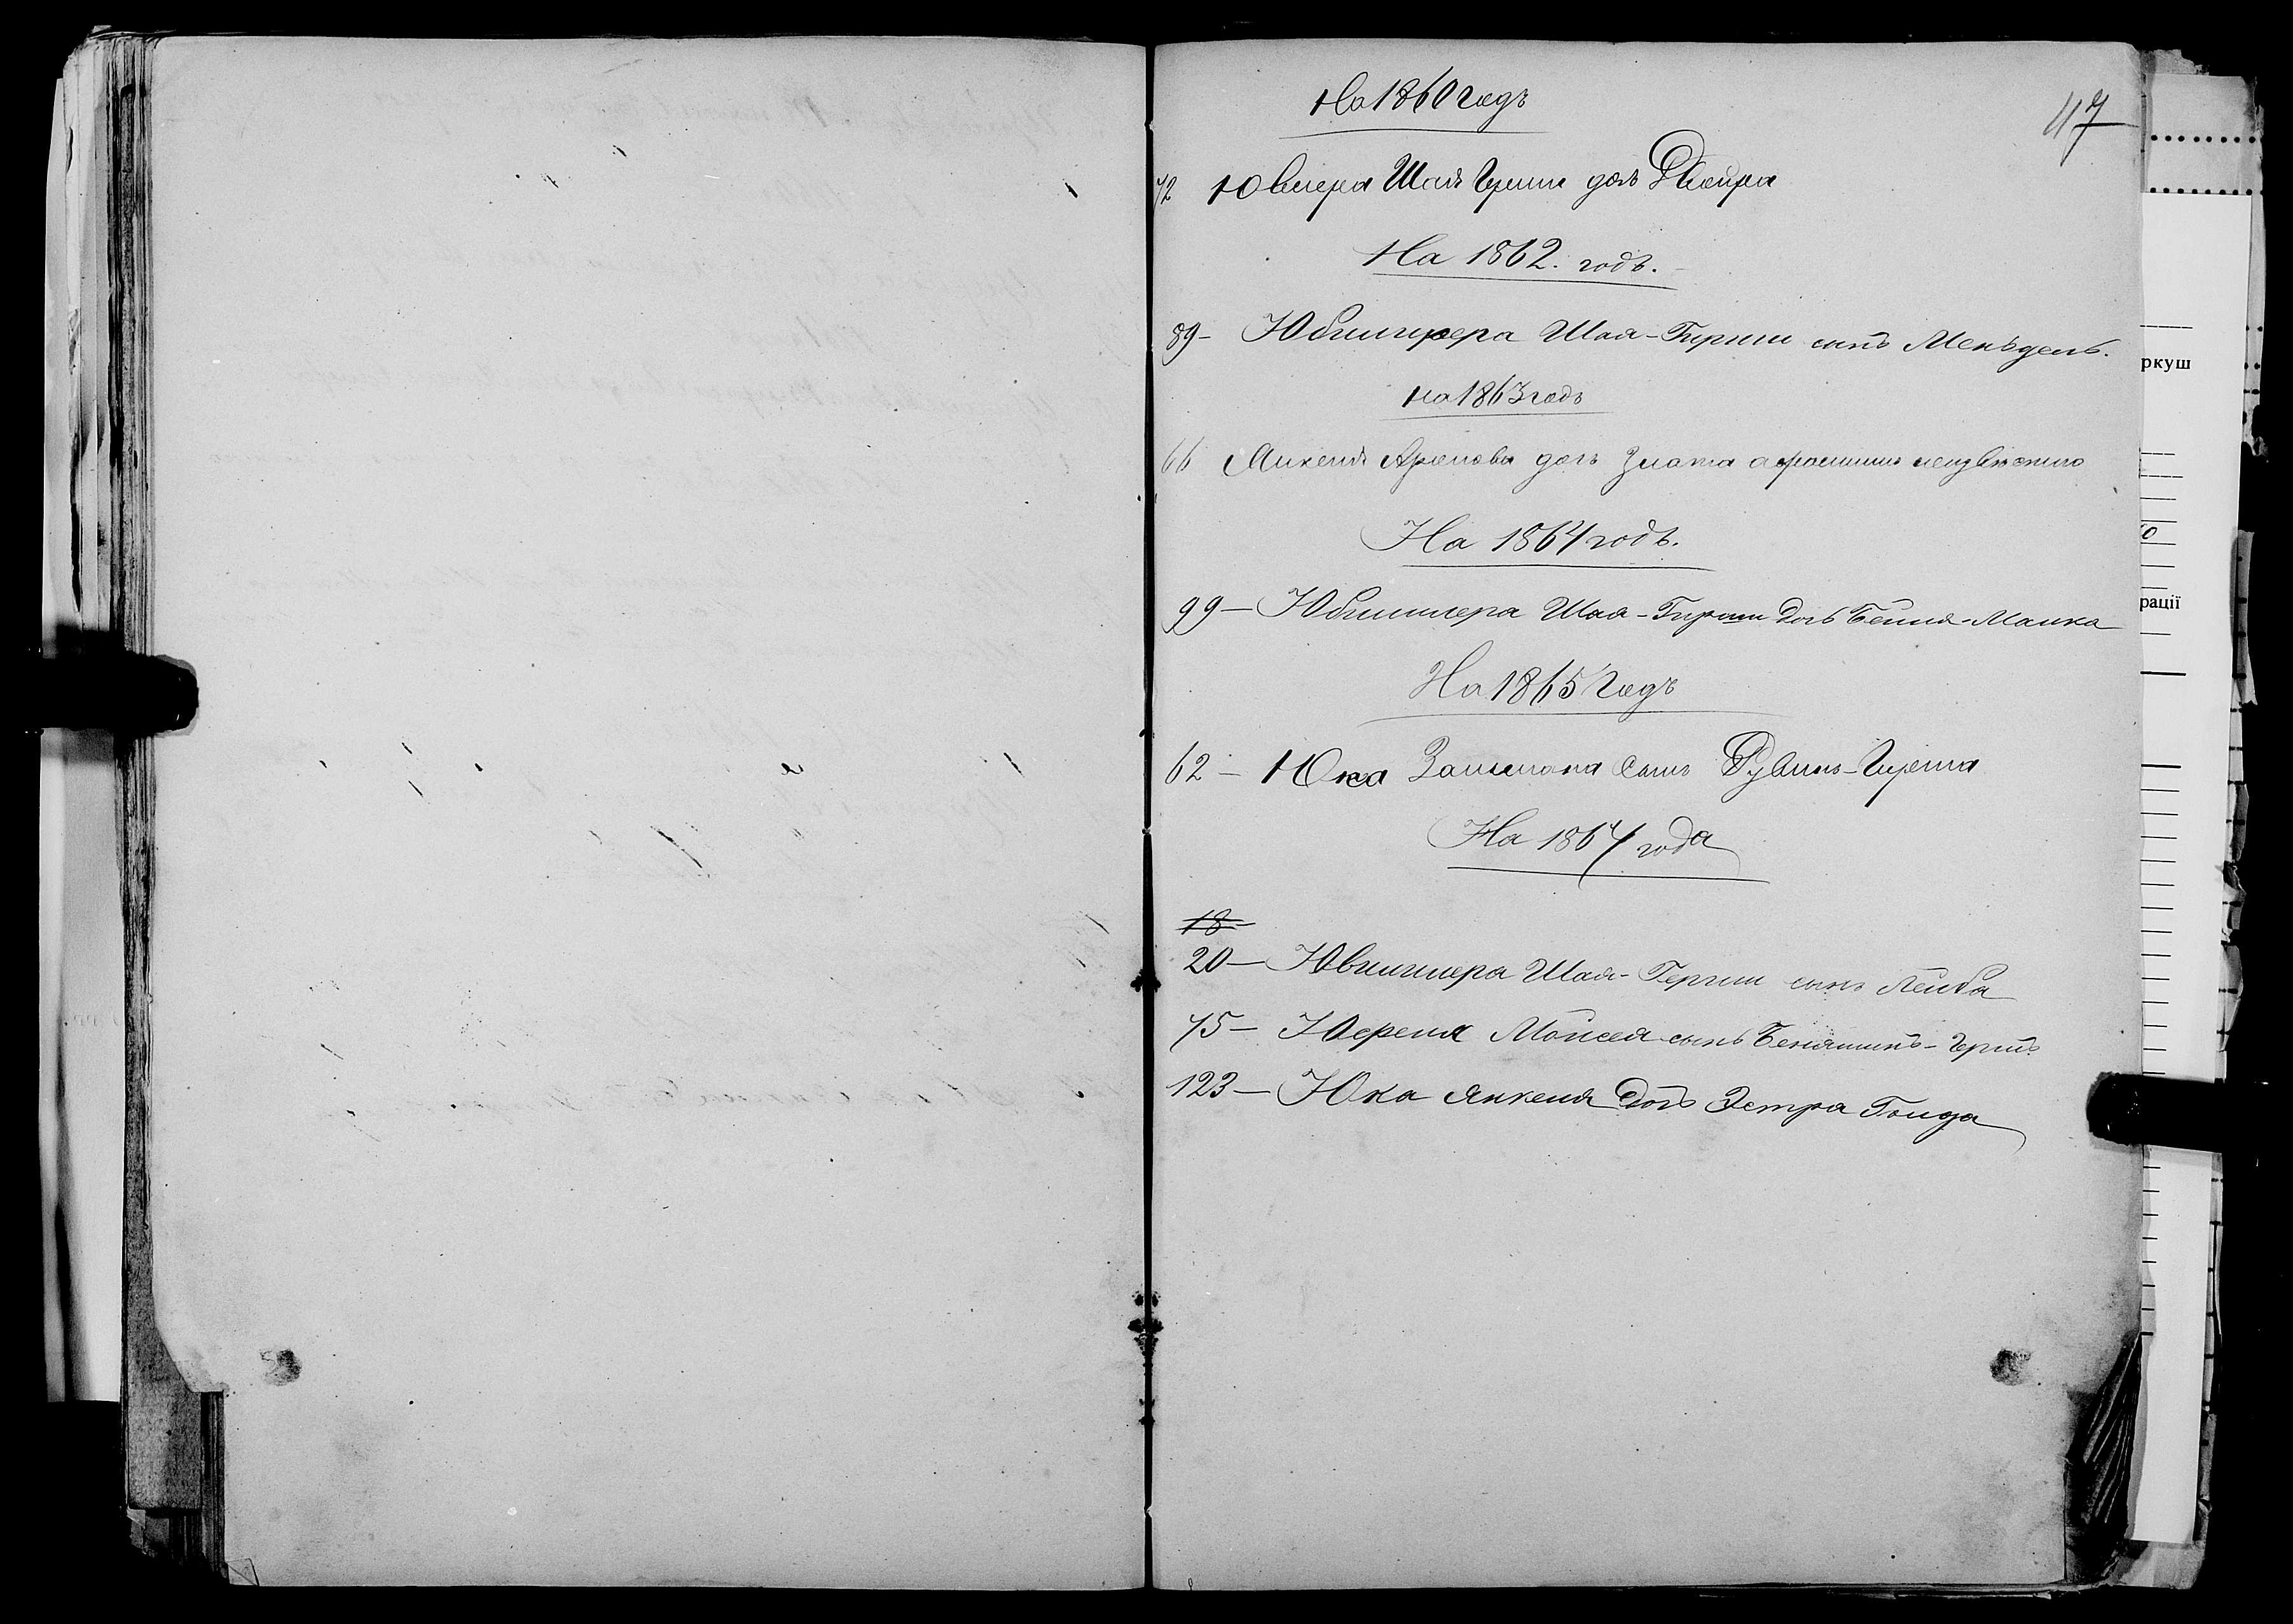 На 1860 годъ
47
72 Ювилера Шая Герши дочь Двойра
На 1862. годъ.
89- Ювилирера Шая-Гирши сынъ Меньдель.
на 1863 годъ
66 Янкеля Ароновы дочь Злота а фамилия неизвѣстно
На 1864 годъ.
99- Ювилилера Шая-Гирши дочь Бейля-Малка
На 1865 Годъ
62- Юка Залимана Сынъ Рувинъ-Герша
На 1867 года
18-
20- Ювилилера Шая-Герши сынъ Лейба
75- Юфреля Мойсея сынъ Беняминъ-Гершъ
123- Юка Янкеля дочь Эстра Голда
ркуш
0
рації